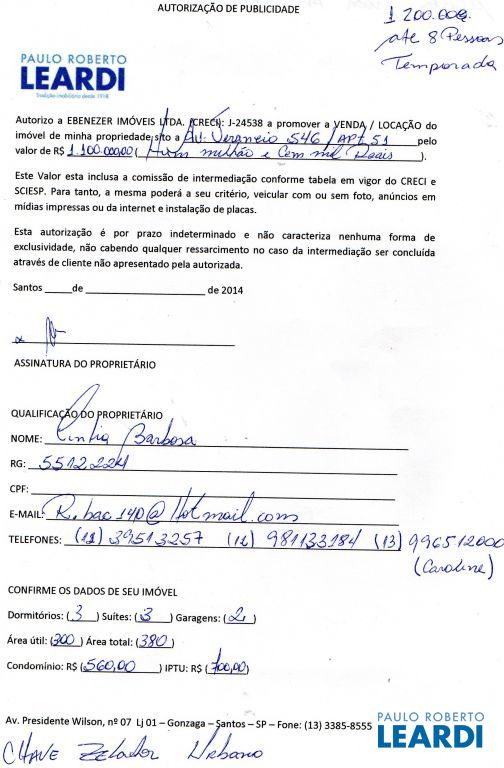 AUTORIZAÇÃO DE PUBLICIDADE
1 200.000,
até 8 Pessoas
Temporada
PAULO ROBERTO
LEARDI
Tradição imobiliária desde 1918
Autorizo a EBENEZER IMÓVEIS LTDA. (CRECI: J-24538 a promover a VENDA / LOCAÇÃO do
imóvel de minha propriedade sito a Av. Veraneio 546 / APT 51 pelo
valor de R$ 1.100.000,00 ( Hum milhão e Cem mil Reais ).
Este Valor esta inclusa a comissão de intermediação conforme tabela em vigor do CRECI e
SCIESP. Para tanto, a mesma poderá a seu critério, veicular com ou sem foto, anúncios em
mídias impressas ou da internet e instalação de placas.
Esta autorização é por prazo indeterminado e não caracteriza nenhuma forma de
exclusividade, não cabendo qualquer ressarcimento no caso da intermediação ser concluída
através de cliente não apresentado pela autorizada.
Santos _____de ______________________ de 2014
x
ASSINATURA DO PROPRIETÁRIO
QUALIFICAÇÃO DO PROPRIETÁRIO
NOME: Cintia Barbosa
RG: 5512224
CPF:
E-MAIL: R.bac140@Hotmail.com
TELEFONES: (11) 39513257 (12) 981133184 (13) 996512000
(Caroline)
CONFIRME OS DADOS DE SEU IMÓVEL
Dormitórios: ( 3 ) Suítes: ( 3 ) Garagens: ( 2 )
Área útil: (300 ) Área total: ( 380 )
Condomínio: R$ ( 560,00 ) IPTU: R$ ( 700,00 )
Av. Presidente Wilson, nº 07 Lj 01 – Gonzaga – Santos – SP – Fone: (13) 3385-8555
PAULO ROBERTO
LEARDI
CHAVE Zelador Urbano